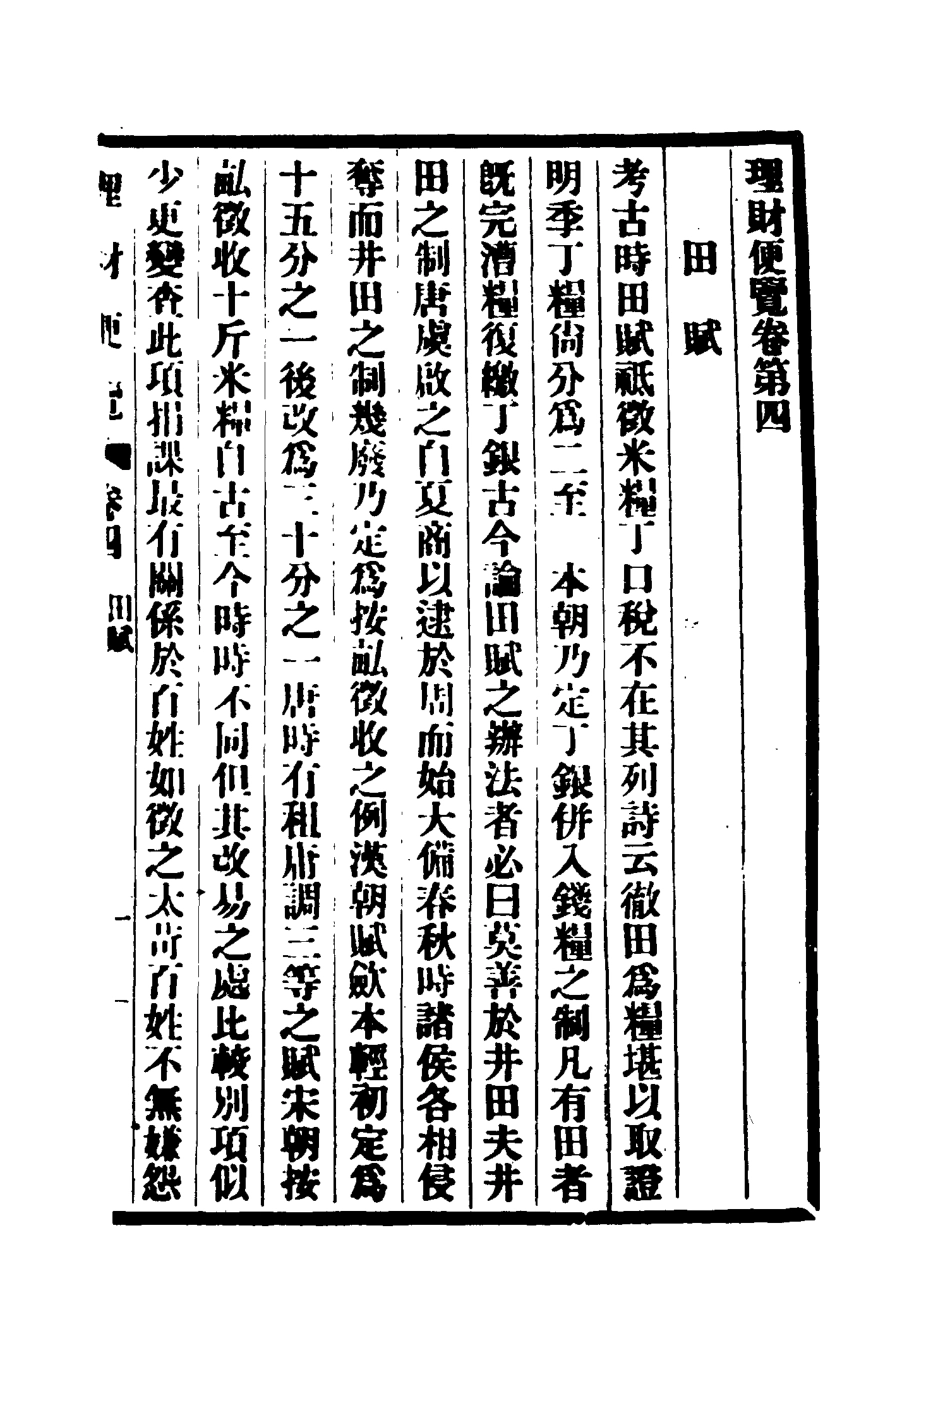 理財便覽卷第四
田賦
考古時田賦祗徵米糧丁口稅不在其列詩云徹田爲糧堪以取證
明季丁糧尙分爲二至　本朝乃定丁銀併入錢糧之制凡有田者
既完漕糧復繳丁銀古今論田賦之辦法者必曰莫善於井田夫井
田之制唐虞啟之自夏商以逮於周而始大備春秋時諸侯各相侵
奪而井田之制幾廢乃定爲按畝徵收之例漢朝賦歛本輕初定爲
十五分之一後改爲三十分之一唐時有租庸調三等之賦宋朝按
畝徵收十斤米糧自古至今時時不同但其改易之處比較別項似
少更變查此項捐課最有關係於百姓如徵之太苛百姓不無嫌怨
理財便覽　卷四　田賦　一　一